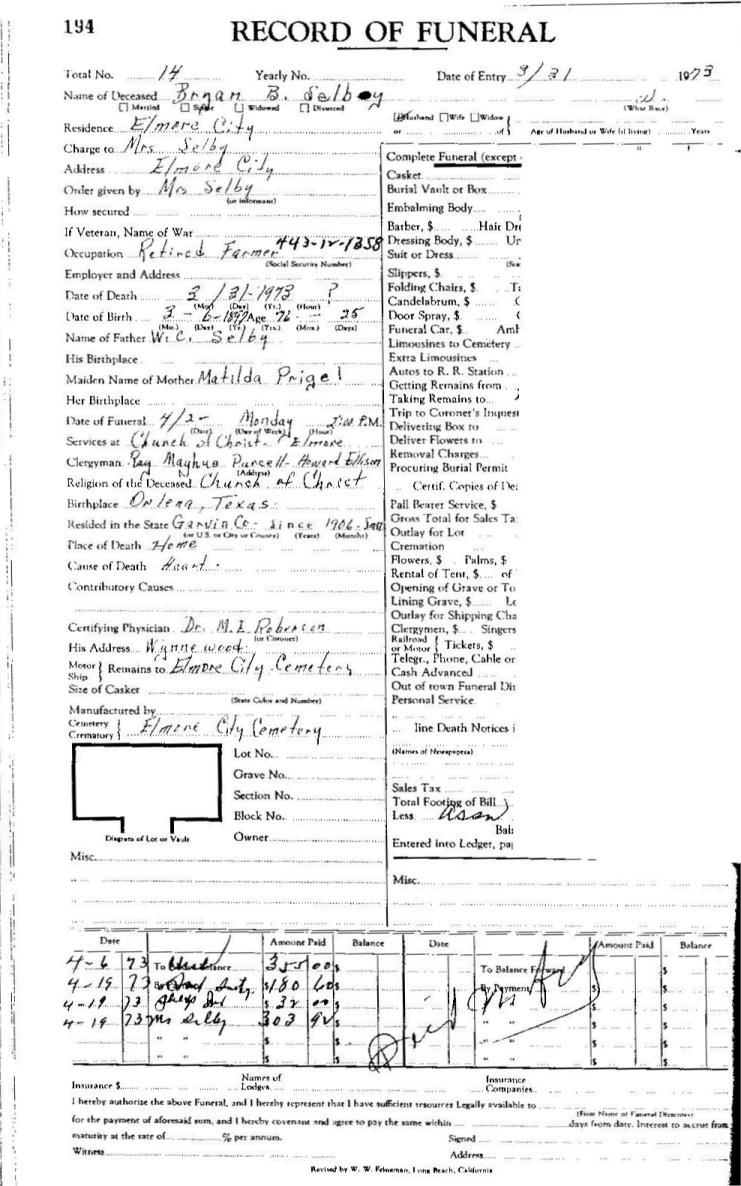 194
RECORD OF FUNERAL
Total No. 14 Yearly No. Date of Entry 3/31 1973
Name of Deceased Bryan B. Selbey W.
Married Single Widowed Divorced (What Race)
Husband Wife Widow
or of Age of Husband or Wife (if living) Years
Residence Elmore City
Charge to Mrs Selby
Address Elmore City
Order given by Mrs Selby
(or informant)
How secured
If Veteran, Name of War
Occupation Retired Farmer 443-12-1358
(Social Security Number)
Employer and Address
Date of Death 3/31-1973 ?
(Mo.) (Day) (Yr.) (Hour)
Date of Birth 3-6-1897 Age 76 - 25
(Mo.) (Day) (Yr.) (Yrs.) (Mos.) (Days)
Name of Father W. C. Selby
His Birthplace
Maiden Name of Mother Matilda Prigel
Her Birthplace
Date of Funeral 4/2- Monday 2:00 P.M.
(Date) (Day of Week) (Hour)
Services at Church of Christ- Elmore
Clergyman Ray Mayhue Purcell- Howard Ellison
(Address)
Religion of the Deceased Church of Christ
Birthplace Orlena, Texas
Resided in the State Garvin Co- since 1906-
(or U.S. or City or County) (Years) (Months)
Place of Death Home
Cause of Death Heart
Contributory Causes
Certifying Physician Dr. M. E. Roberson
(or Coroner)
His Address Wynnewood
Motor
Ship } Remains to Elmore City Cemetery
Size of Casket
(State Color and Number)
Manufactured by
Cemetery
Crematory } Elmore City Cemetery
Lot No.
Grave No.
Section No.
Block No.
Owner
Diagram of Lot or Vault
Misc.
Complete Funeral (except
Casket
Burial Vault or Box
Embalming Body
Barber, $ Hair Dri
Dressing Body, $ Ur
Suit or Dress
Slippers, $
Folding Chairs, $
Candelabrum, $
Door Spray, $
Funeral Car, $ Amb
Limousines to Cemetery
Extra Limousines
Autos to R. R. Station
Getting Remains from
Taking Remains to
Trip to Coroner's Inquest
Delivering Box to
Deliver Flowers to
Removal Charges
Procuring Burial Permit
Certif. Copies of De
Pall Bearer Service, $
Gross Total for Sales Ta
Outlay for Lot
Cremation
Flowers, $ Palms, $
Rental of Tent, $ of
Opening of Grave or To
Lining Grave, $
Outlay for Shipping Cha
Clergymen, $ Singers
Railroad
or Motor { Tickets, $
Telegr., Phone, Cable or
Cash Advanced
Out of town Funeral Dir
Personal Service
line Death Notices i
(Names of Newspapers)
Sales Tax
Total Footing of Bill
Less
Bal
Entered into Ledger, pa
Misc.
Date Amount Paid Balance Date Amount Paid Balance
4-6 73 To Balance 355 00 $ To Balance Forward $
4-19 73 By $180 60 $ By Payment $
4-19 73 $ 32 00 $
4-19 73 Mrs Selby 303 92 $
Paid
Insurance $ Names of Lodges Insurance Companies
I hereby authorize the above Funeral, and I hereby represent that I have sufficient resources Legally available to
(Firm Name of Funeral Directors)
for the payment of aforesaid sum, and I hereby covenant and agree to pay the same within days from date. Interest to accrue from
maturity at the rate of % per annum. Signed
Witness Address
Revised by W. W. Feineman, Long Beach, California